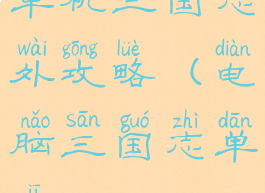 单机三国志
wài gōng lüè diàn
外攻略（电
nǎo sān guó zhì dān
脑三国志单